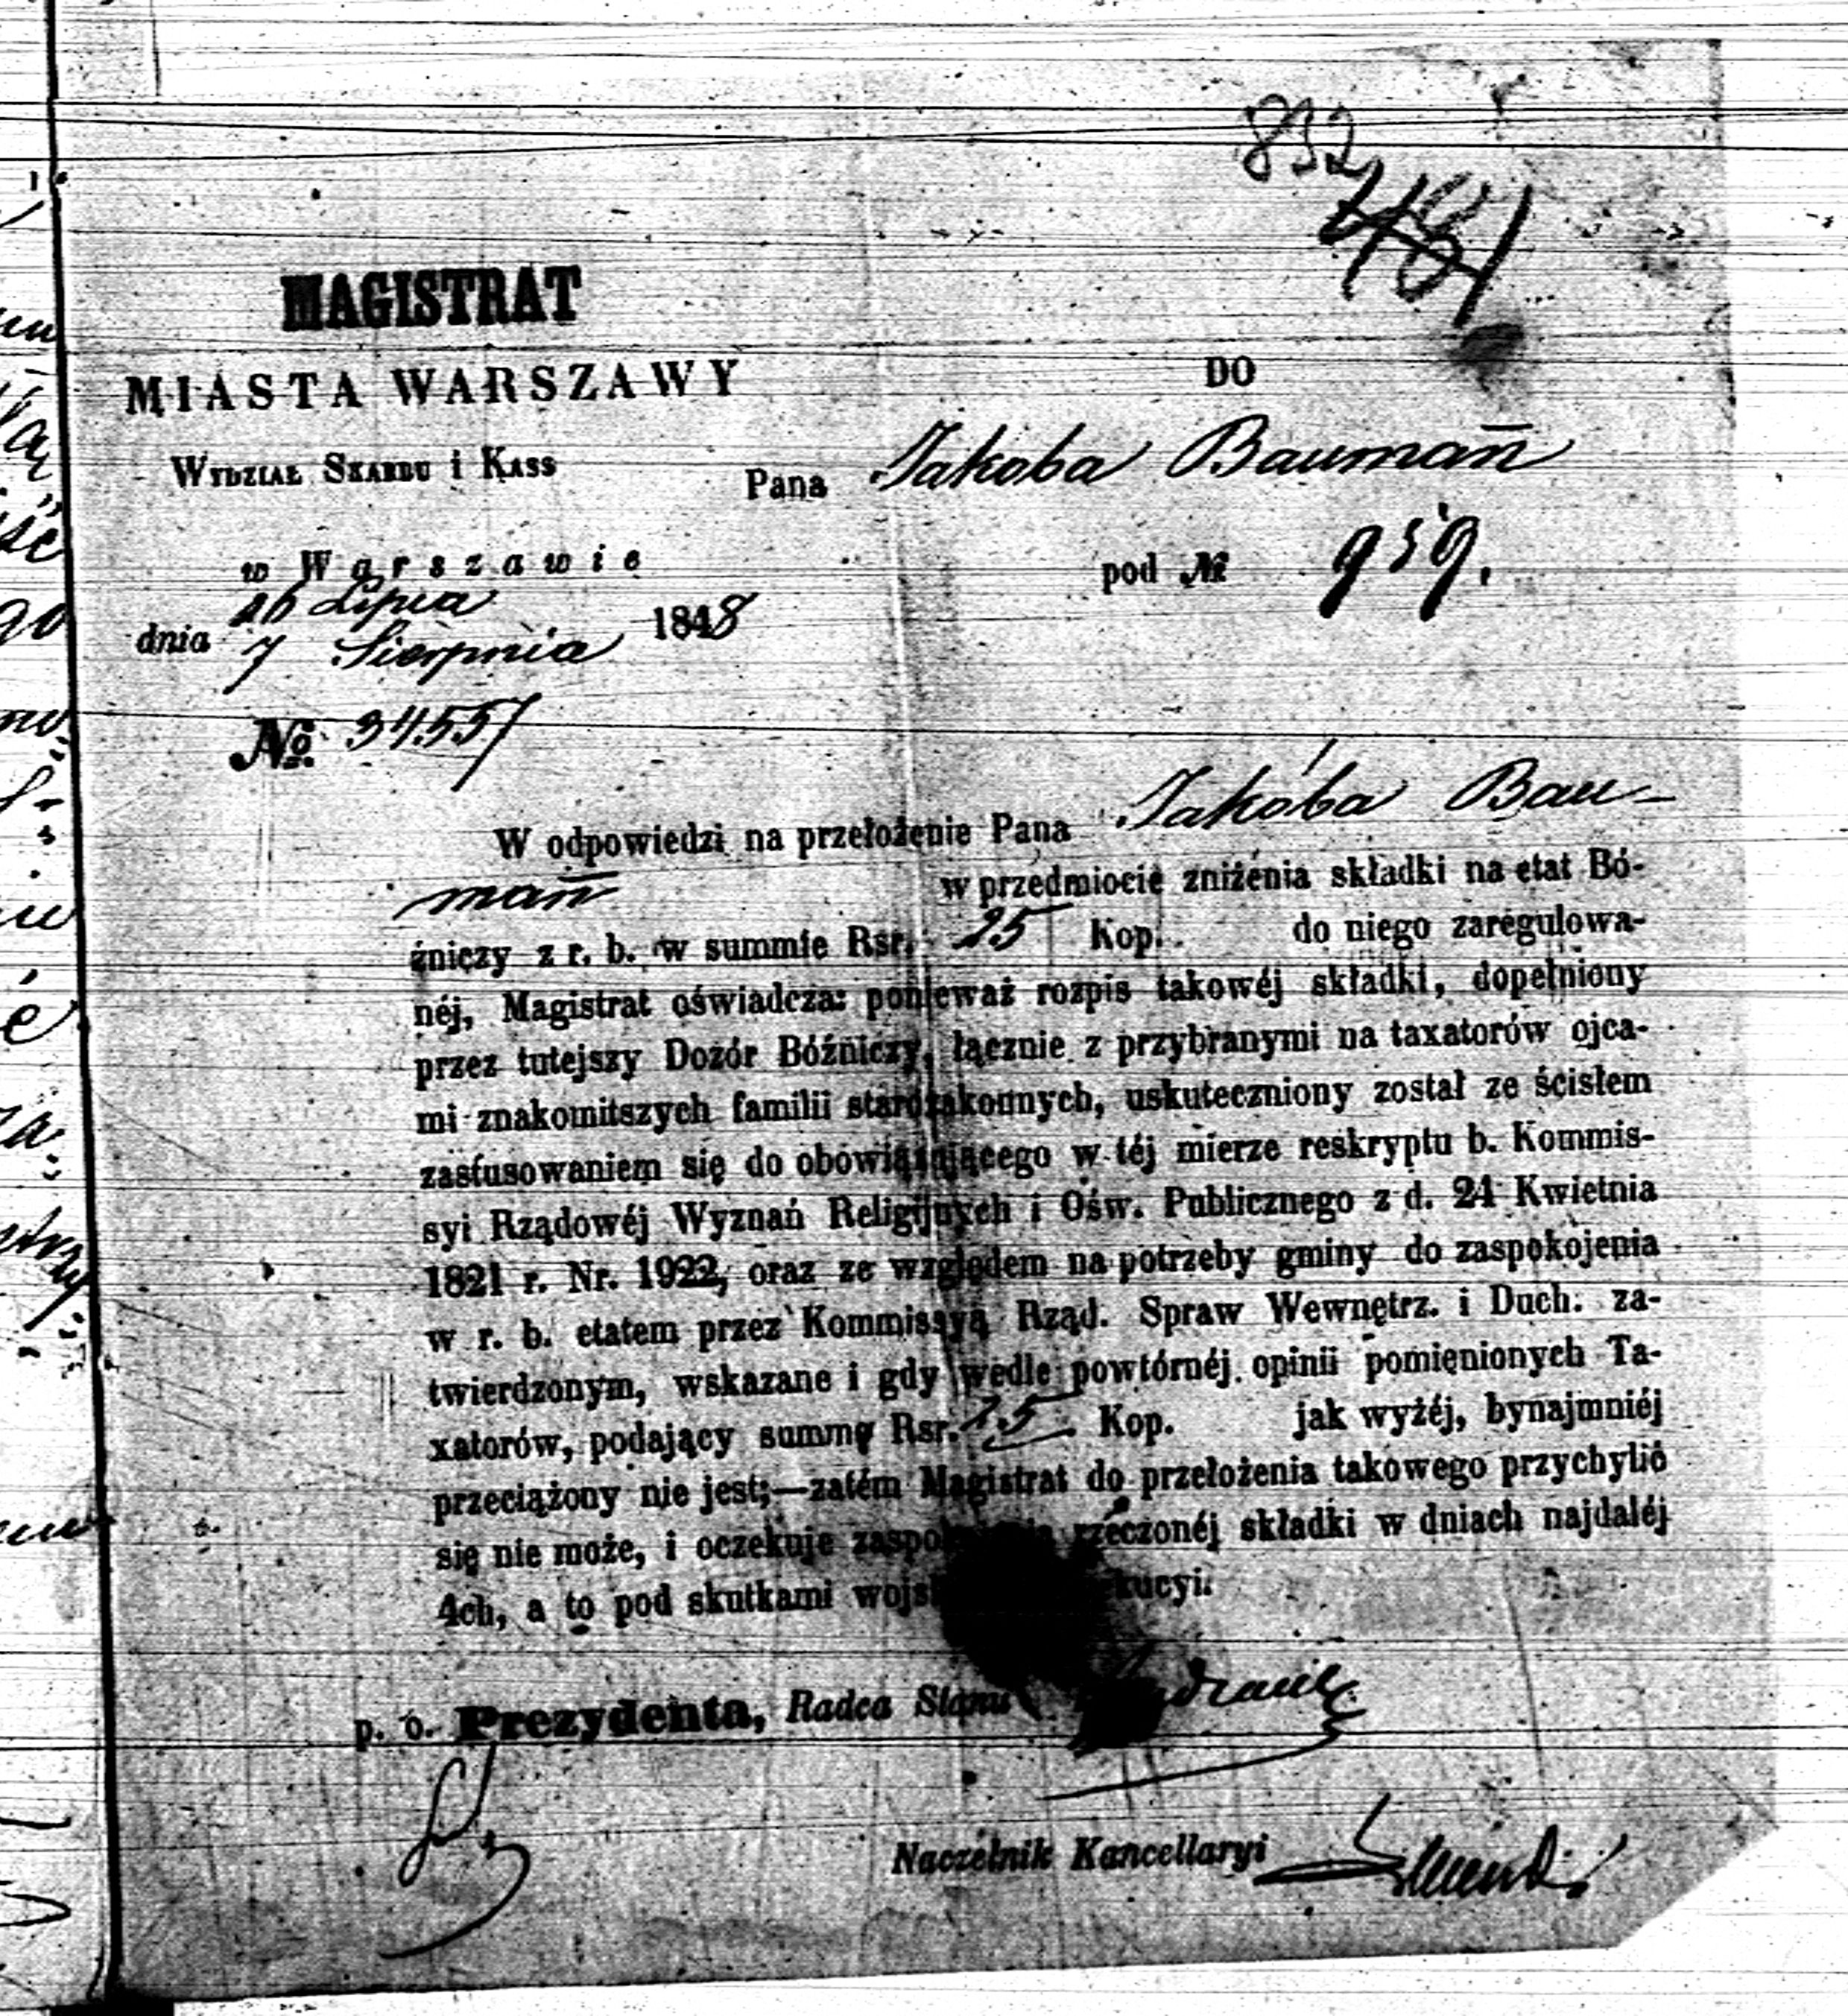 832
MAGISTRAT
MIASTA WARSZAWY
DO
WYDZIAŁ SKARBU i KASS
Pana Jakoba Baumañ
w Warszawie
pod № 959.
dnia 26 Lipca
7 Sierpnia 1848
No. 34557
W odpowiedzi na przełożenie Pana Jakóba Bau-
mañ w przedmiocie zniżenia składki na etat Bó-
źniczy z r. b. w summie Rsr. 25 Kop. do niego zaregulowa-
néj, Magistrat oświadcza: ponieważ rozpis takowéj składki, dopełniony
przez tutejszy Dozór Bóźniczy, łącznie z przybranymi na taxatorów ojca-
mi znakomitszych familii starozakonnych, uskuteczniony został ze ścisłem
zastusowaniem się do obowiązującego w téj mierze reskryptu b. Kommis-
syi Rządowéj Wyznań Religijnych i Ośw. Publicznego z d. 24 Kwietnia
1821 r. Nr. 1922, oraz ze względem na potrzeby gminy do zaspokojenia
w r. b. etatem przez Kommissyą Rząd. Spraw Wewnętrz. i Duch. za-
twierdzonym, wskazane i gdy wedle powtórnéj opinii pomięnionych Ta-
xatorów, podający summę Rsr. 25 Kop. jak wyżéj, bynajmniéj
przeciążony nie jest;—zatém Magistrat do przełożenia takowego przychylić
się nie może, i oczekuje rzeczonéj składki w dniach najdaléj
4ch, a to pod skutkami
p. o. Prezydenta, Radca Stanu
Naczelnik Kancellaryi